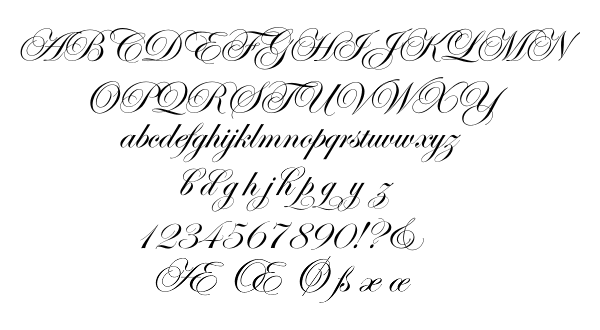 ABCDEFGHIJKLMN
OPQRSTUVWXY
abcdefghijklmnopqrstuvwxyz
b d g h j h p q y z
1234567890!?&
Æ Œ Ø ß æ œ